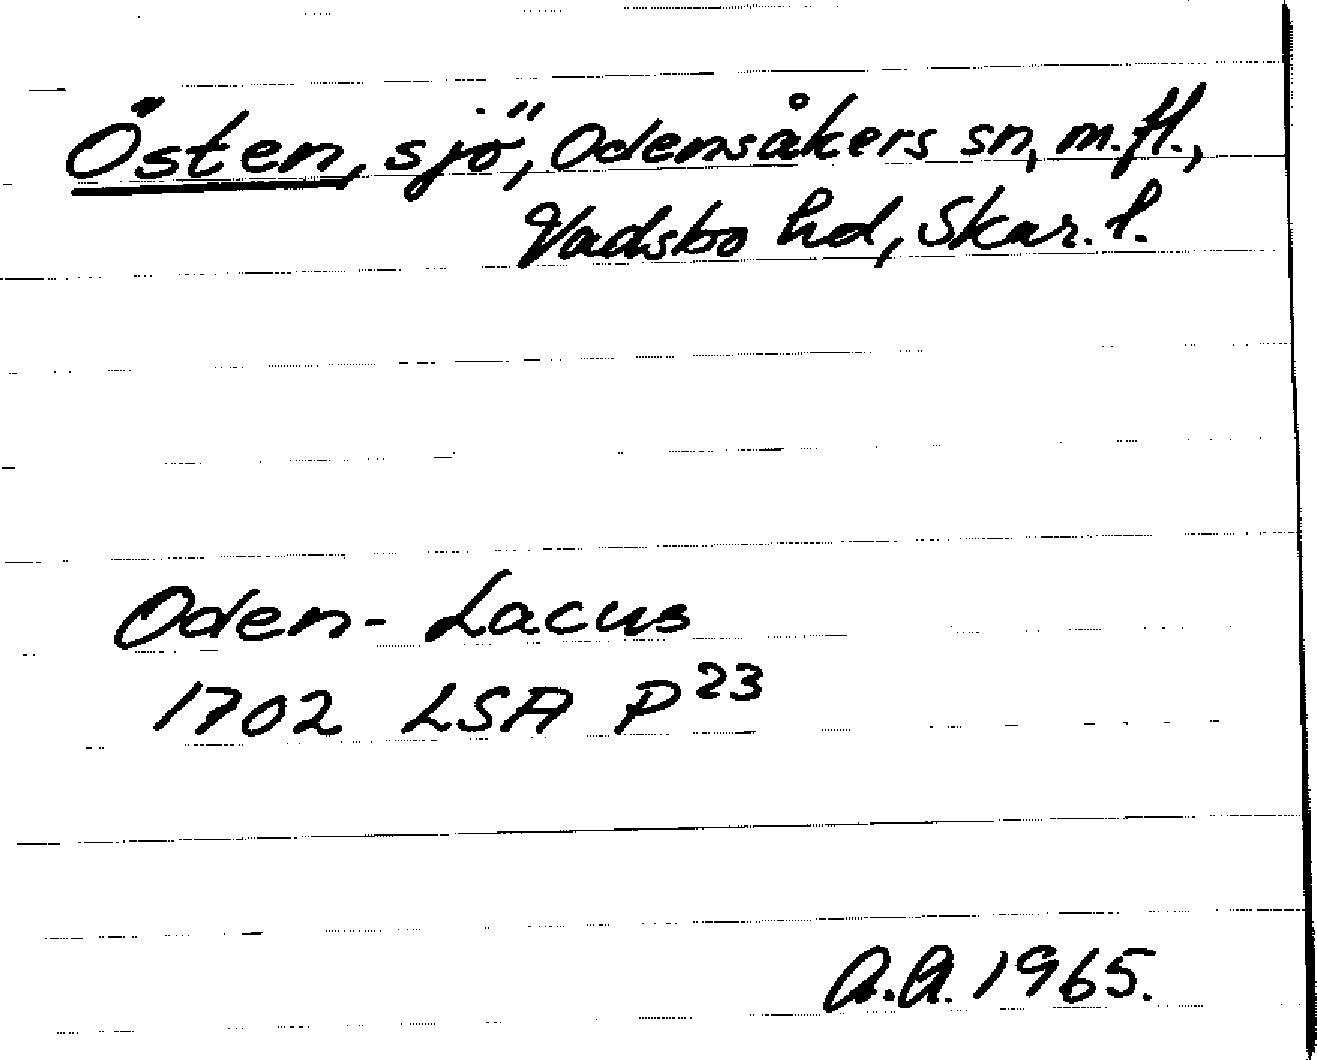 Östen, sjö, Odensåkers sn, m.fl.,
Vadsbo hd, Skar. l.
Oden- Lacus
1702 LSA P23
A.A. 1965.